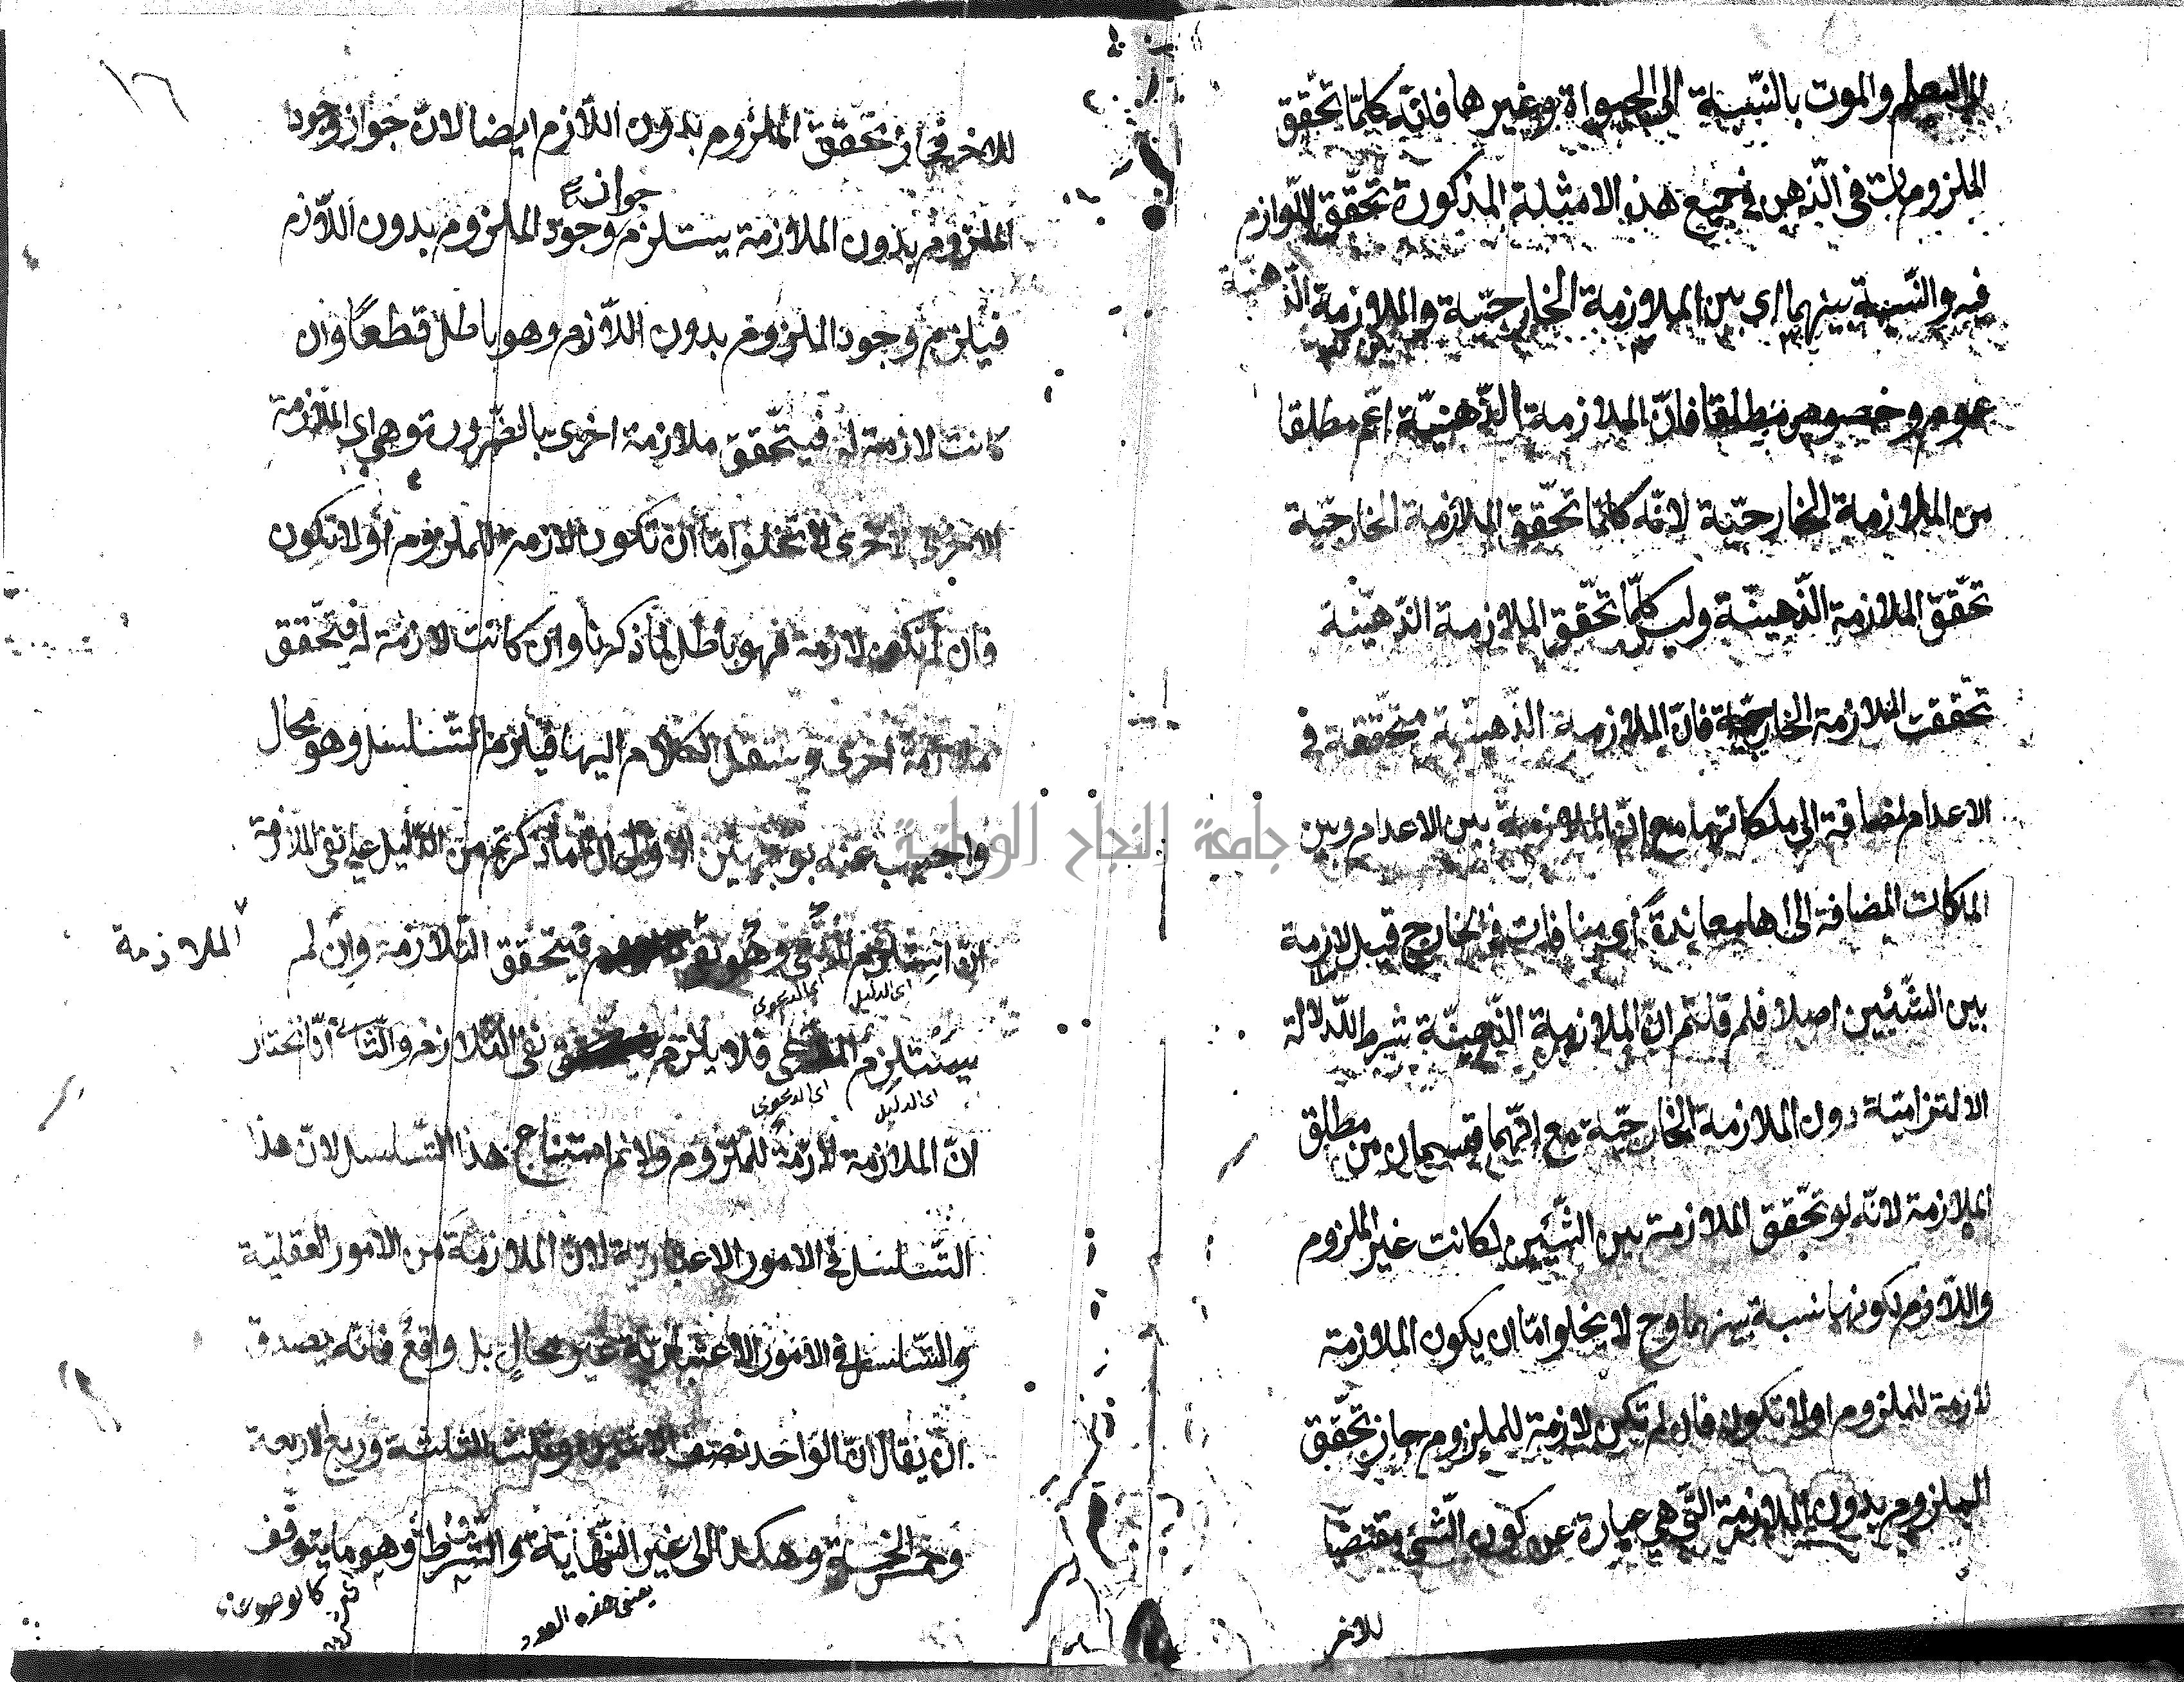 والموت بالنسبة الى الحيواة وغيرها فانّه كلما تحقق
الملزومات في الذهن في جميع هذه الامثلة المذكورة تحقق اللوازم
فيه والنسبة بينهما اى بين الملازمة الخارجيّة والملازمة الذهنيّة
عموم وخصوص مطلقا فانّ الملازمة الذّهنيّة اعّم مطلقا
من الملازمة الخارجيّة لانّه كلّما تحقّق الملازمة الخارجيّة
تحقّق الملازمة الذّهنيّة وليس كلّما تحقّق الملازمة الذّهنيّة
تحققت الملازمة الخارجيّة فانّ الملازمة الذّهنيّة متحقّقة في
الاعدام لمضافة الى ملكاتهما مع انّ الملازمة بين الاعدام وبين
الملكات المضافة الى معاندةً اى منافات في الخارج قيل لازمة
بين الشّيئين اصلا فلم قلتم انّ الملازمة الذّهنيّة شرط للّدلالة
الالتزاميّة دون الملازمة الخارجيّة مع انّهما قسيمان من مطلق
الملازمة لانّه لو تحقّق الملازمة بين الشّيئين لكانت غير الملزوم
واللّازم لكونها نسبة بينهما وح لا يخلوا امّا ان يكون الملازمة
لازمة للملزوم او لا تكون فان لم تكن لازمة للملزوم جاز تحقّق
الملزوم بدون الملازمة الّتي هي عبارة عن كون الشّئ مقتضيّا
للاخر
١٦
للاخر فجاز تحقّق الملزوم بدون اللّازم ايضا لانّ جواز وجود
جواز
الملزوم بدون الملازمة يستلزم وجود الملزوم بدون اللّازم
فيلزم وجود الملزوم بدون اللّازم وهو باطل قطعًا وان
كانت لازمة له فيتحّقق ملازمة اخرى بالضّرورة وهي اى الملازمة
الاخرى لا تخلوا امّا ان تكون لازمة للملزوم او لا تكون
فان لم تكن لازمة فهو باطل لما ذكرنا وان كانت لازمة له فيتحّقق
ملازمة اخرى وننقل الكلام اليها فيلزم التّسلسل وهو محال
واجيب عنه بوجهين الاوّل انّ ما ذكرتم من الدّليل على نفى الملازمة
ان استلزم المدّعى وهو نفى فيتحقق التّلازمة وان لم
الملازمة
اى الدليل اى الدعوى
يستلزم المدّعى فلا يلزم نفى التّلازم والثّاني انّا نختار
اى الدليل اى الدعوى
انّ الملازمة لازمة للملزوم ولا نم امتناع هذا التّسلسل لانّ هذا
التّسلسل في الامور الاعتباريّة لانّ الملازمة من الامور العقليّة
والتّسلسل في الامور الاعتباريّة غير محالٍ بل واقعٌ فانّه يصدق
ان يقال انّ الواحد نصف الاثنين وثلث الثلثة وربع الاربعة
وخمس الخمسة وهكذا الى غير النّهاية والشّرط وهو ما يتوقّف
يعنى هذه العدد
كالوضوء